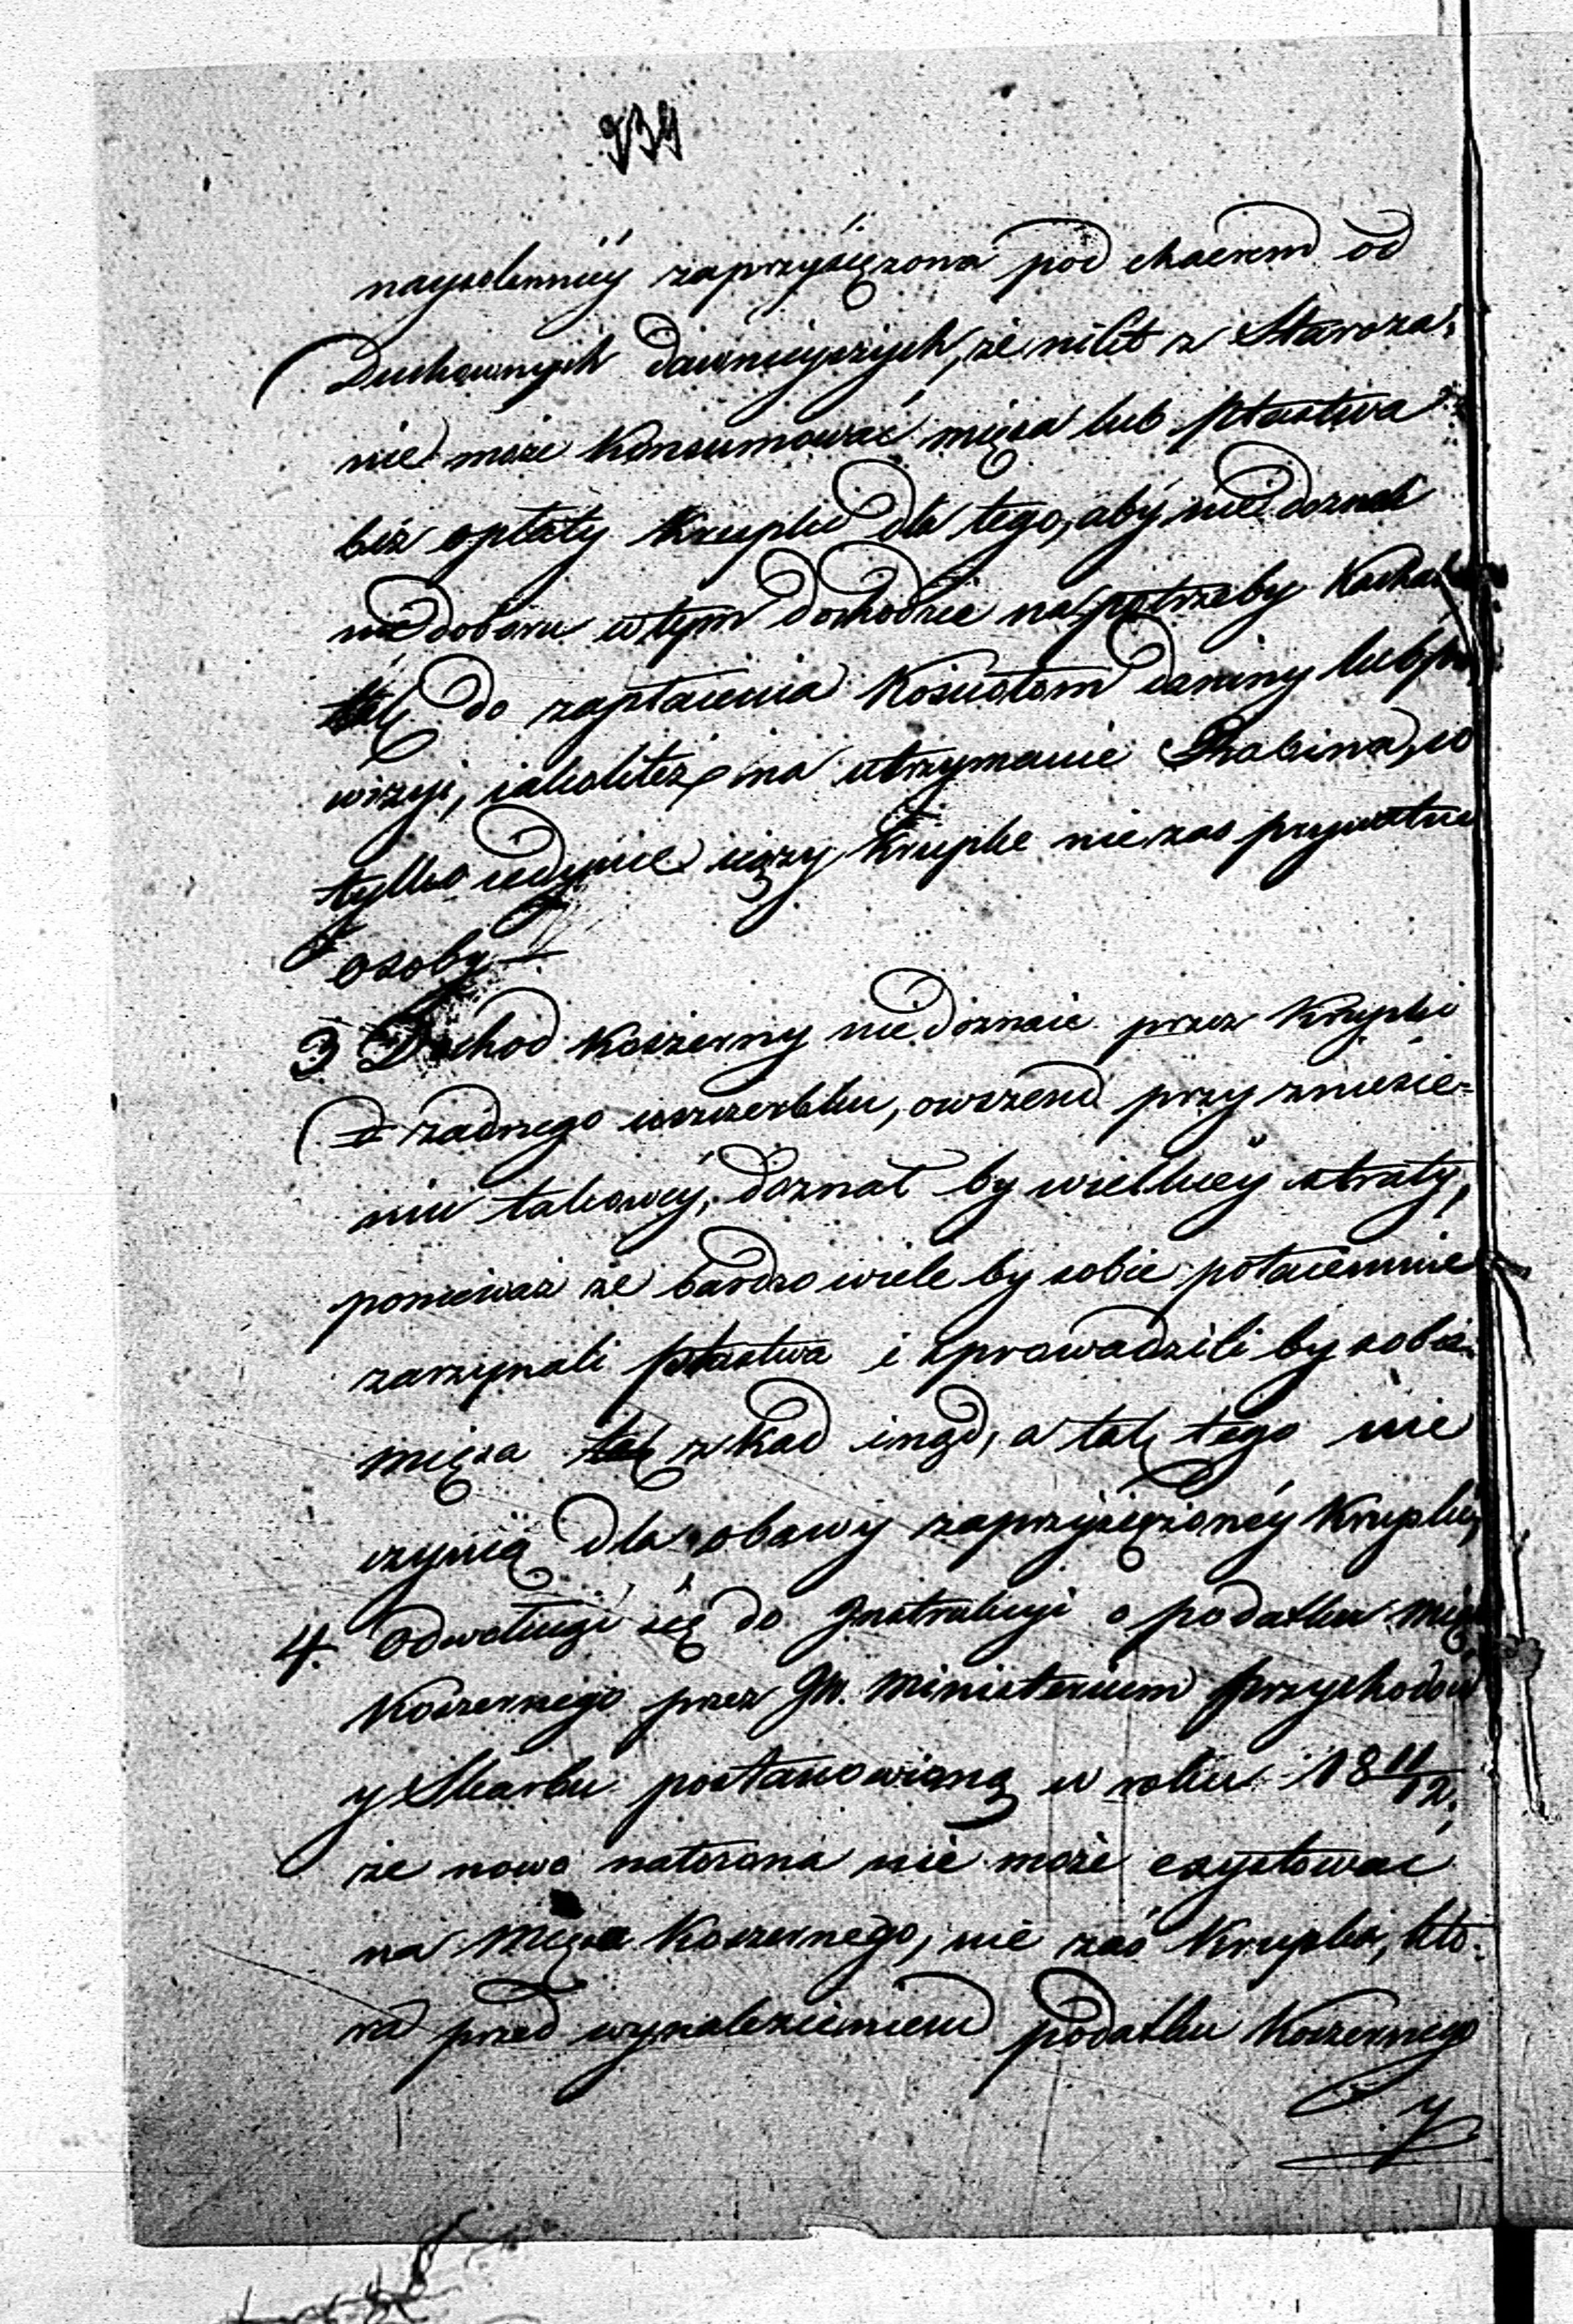 934
naysolenniey zaprzysiężona pod chaerem od
Duchownych dawnieyszych, że nikt z Staroza,
nie może konsumować mięsa lub ptastwa
bez opłaty Krupki dla tego, aby nie doznać
niedoboru w tym dochodzie na potrzeby Kachal
tak do zapłacenia Kościołom daniny lub pro
wizyi, iakoliteż na utrzymanie Rabina, co
tylko iedynie ięzy Krupke nie zas prywatne
osoby —
3 Dochod Koszerny nie doznaie przez Krupki
żadnego uszczerbku, owszem przy zniesie=
niu takowey, doznał by wielkiey straty,
ponieważ że bardzo wiele by sobie potaiemnie
zarzynali ptastwa i sprowadzili by sobie
mięsa zkad ingd, a tak tego nie
czynią dla obawy zaprzysiężoney Krupki,
4. Odwoługe się do Jnstrukcyi o podatku mięs
Koszernego przez JW. Ministerium przychodow
y Skarbu postanowioną w roku 18 11/12,
że nowo natożona nie może exystować
na mięsa Koszernego, nie zaś Krupka, kto=
ra przed wynalezieniem podatku Koszernego
y